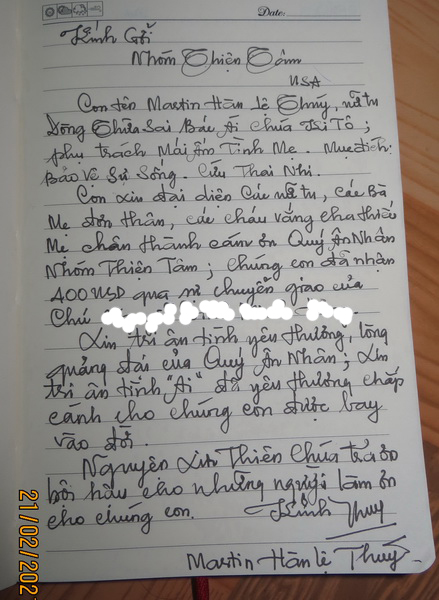 Date:
Kính Gởi:
Nhóm Thiện Tâm
USA
Con tên Martin Hàn Lê Thúy, nữ tu
Dòng Thừa Sai Bác Ái Chúa Ki Tô;
phụ trách Mái Ấm Tình Mẹ. Mục đích:
Bảo Vệ Sự Sống. Cứu Thai Nhi.
Con xin đại diện các nữ tu, các Bà
Mẹ đơn thân, các cháu vắng cha thiếu
Mẹ chân thành cám ơn Quý Ân Nhân
Nhóm Thiện Tâm; chúng con đã nhận
400 USD qua sự chuyển giao của
Chú
Xin tri ân tình yêu thương, lòng
quảng đại của Quý Ân Nhân; Xin
tri ân tình "Ai" đã yêu thương chắp
cánh cho chúng con được bay
vào đời.
Nguyện xin Thiên Chúa trả ơn
bội hậu cho những người làm ơn
cho chúng con. Kính
Martin Hàn Lệ Thuý
21/02/202